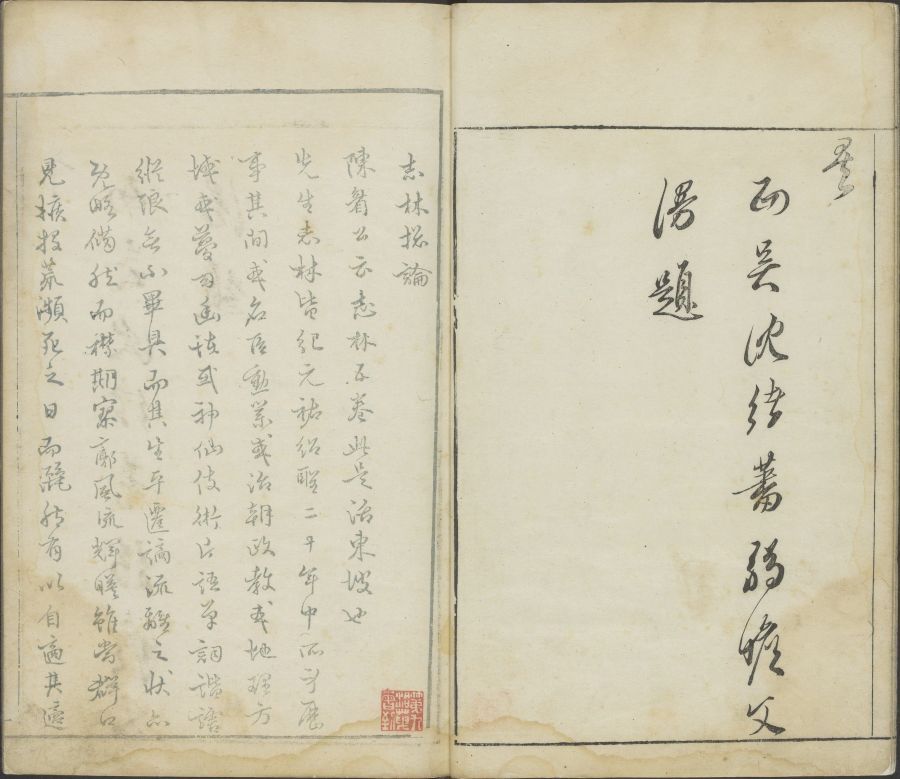 西吳沈緒蕃弱瞻父
漫題
志林總論
陳眉公云志林五卷此是活東坡也
先生志林皆紀元祐紹聖二十年中所身歷
事其間或名臣勳業或治朝政教或地理方
域或夢幻幽怪或神仙伎術片語單詞諧謔
縱浪無不畢具而其生平遷謫流離之狀亦
既略備然而襟期寥廓風流輝映雖當群口
見擠投荒瀕死之日而灑然有以自適其適